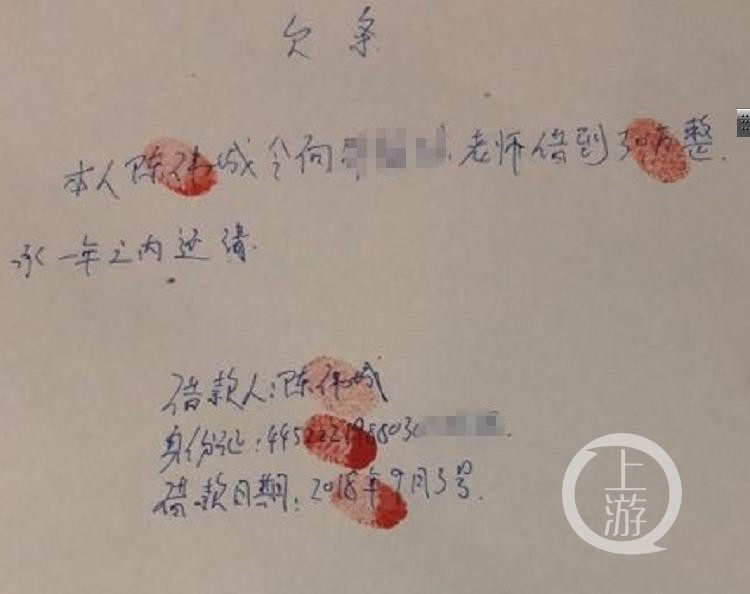 欠条
本人陈伟城今向 老师借到30万整.
一年之内还清.
借款人:陈伟城
身份证:4452221988030
借款日期:2018年9月3号.
上游